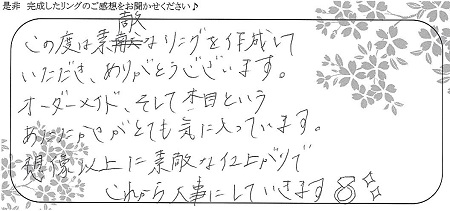 是非 完成したリングのご感想をお聞かせください♪
この度は素敵なリングを作成して
いただき、ありがとうございます。
オーダーメイド、そして木目という
あたたかさがとても気に入っています。
想像以上に素敵な仕上がりで
これから大事にしていきます